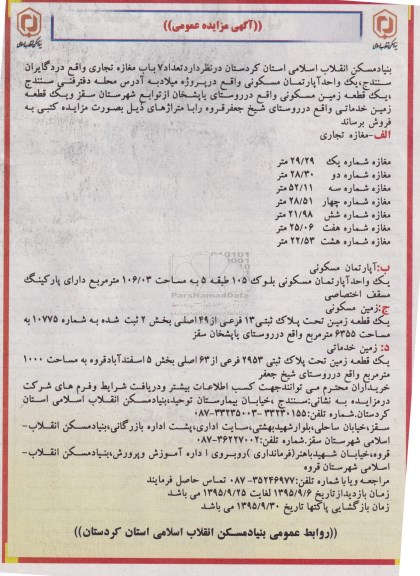 ((آگهی مزایده عمومی))
بنیادمسکن انقلاب اسلامی استان کردستان درنظرداردتعداد۷ باب مغازه تجاری واقع دردگایران
سنندج،یک واحدآپارتمان مسکونی واقع درپروژه میلادبه آدرس محله دفترفنی سنندج
،یک قطعه زمین مسکونی واقع درروستای یاپشخان ازتوابع شهرستان سقز ویک قطعه
زمین خدماتی واقع درروستای شیخ جعفرقروه رابا متراژهای ذیل بصورت مزایده کتبی به
فروش برساند
الف-مغازه تجاری
مغازه شماره یک ۲۹/۲۹ متر
مغازه شماره دو ۲۸/۳۰ متر
مغازه شماره سه ۵۲/۱۱ متر
مغازه شماره چهار ۲۸/۵۱ متر
مغازه شماره شش ۲۱/۹۸ متر
مغازه شماره هفت ۲۵/۰۶ متر
مغازه شماره هشت ۲۲/۵۳ متر
ب:آپارتمان مسکونی
یک واحدآپارتمان مسکونی بلوک ۱۰۵ طبقه ۵ به مساحت ۱۰۶/۰۳ مترمربع دارای پارکینگ
مسقف اختصاصی
ج:زمین مسکونی
یک قطعه زمین تحت پلاک ثبتی۱۳ فرعی از۴۹اصلی بخش ۲ ثبت شده به شماره ۱۰۷۷۵ به
مساحت ۶۳۵۵ مترمربع واقع درروستای یاپشخان سقز
د: زمین خدماتی
یک قطعه زمین تحت پلاک ثبتی ۲۹۵۳ فرعی از۶۳ اصلی بخش ۵ اسفندآبادقروه به مساحت ۱۰۰۰
مترمربع واقع درروستای شیخ جعفر
خریداران محترم می توانندجهت کسب اطلاعات بیشتر ودریافت شرایط وفرم های شرکت
درمزایده به نشانی:سنندج ،خیابان بیمارستان توحید،بنیادمسکن انقلاب اسلامی استان
کردستان.شماره تلفن:۳۳۲۳۰۱۵۵- ۳۳۲۳۵۰۰۳-۰۸۷
سقز،خیابان ساحلی،بلوارشهیدبهشتی،سایت اداری،پشت اداره بازرگانی،بنیادمسکن انقلاب-
اسلامی شهرستان سقز.شماره تلفن:۳۶۲۲۷۰۰۲-۰۸۷
قروه،خیابان شهیدباهنر(فرمانداری )روبروی اداره آموزش وپرورش،بنیادمسکن انقلاب-
اسلامی شهرستان قروه
مراجعه ویاباشماره تلفن:۳۵۲۴۶۹۷۷- ۰۸۷ تماس حاصل فرمایند
زمان بازدیدازتاریخ ۱۳۹۵/۹/۶ لغایت ۱۳۹۵/۹/۲۵ می باشد
زمان بازگشایی پاکتها تاریخ ۱۳۹۵/۹/۳۰ می باشد
((روابط عمومی بنیادمسکن انقلاب اسلامی استان کردستان))